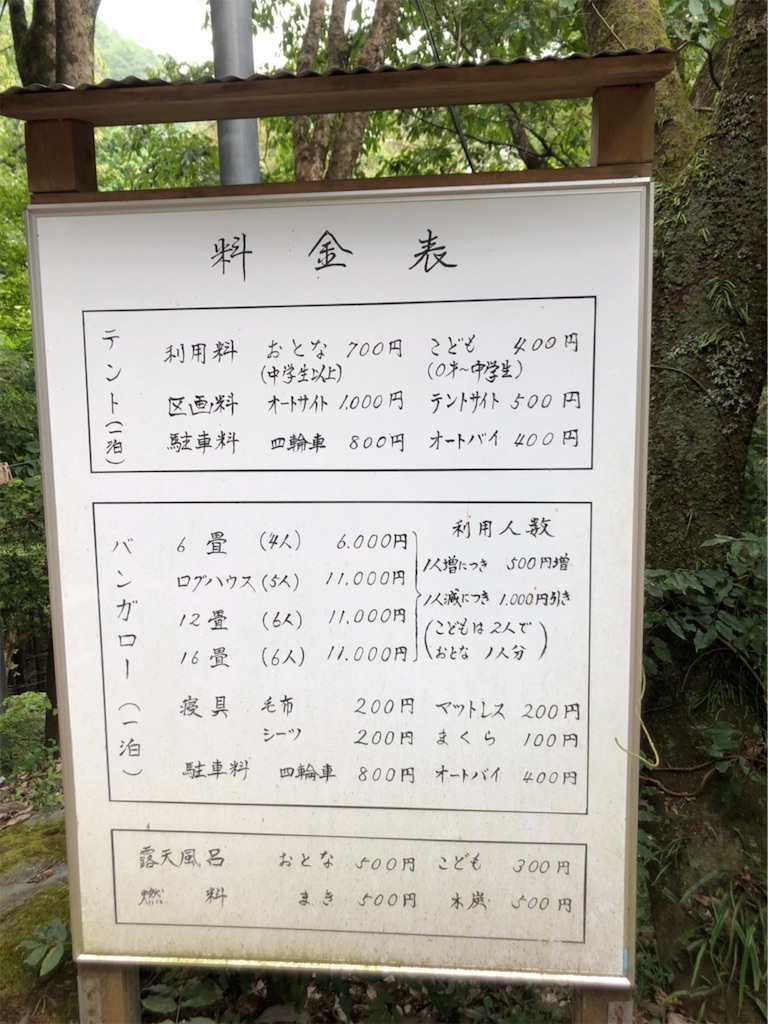 料金表
テント(一泊)
利用料 おとな 700円 こども 400円
(中学生以上) (0才〜中学生)
区画料 オートサイト 1.000円 テントサイト 500円
駐車料 四輪車 800円 オートバイ 400円
バンガロー(一泊)
利用人数
6畳 (4人) 6.000円
1人増につき 500円増
ログハウス(5人) 11.000円
1人減につき 1.000円引き
12畳 (6人) 11.000円
(こどもは2人で
16畳 (6人) 11.000円
おとな 1人分)
寝具 毛布 200円 マットレス 200円
シーツ 200円 まくら 100円
駐車料 四輪車 800円 オートバイ 400円
露天風呂 おとな 500円 こども 300円
燃料 まき 500円 木炭 500円